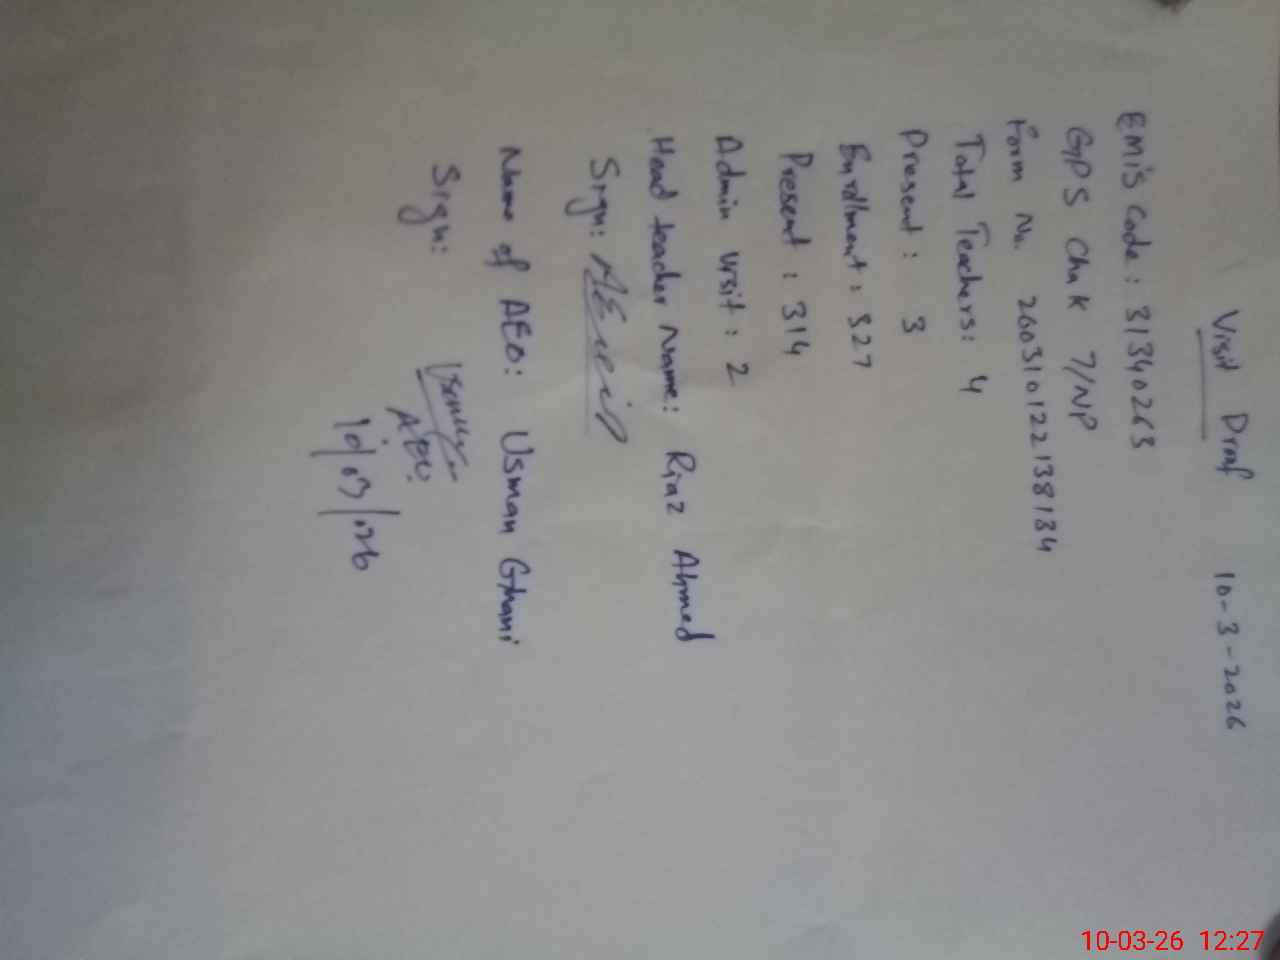 Visit Praf 10-3-2026
EMIS Code: 31340263
GPS Chak 7/NP
Form No. 260310122138134
Total Teachers: 4
Present: 3
Enrollment: 327
Present: 314
Admin visit: 2
Head teacher Name: Riaz Ahmed
Sign:
Name of AEO: Usman Ghani
Sign:
AEO.
10/03/026
10-03-26 12:27